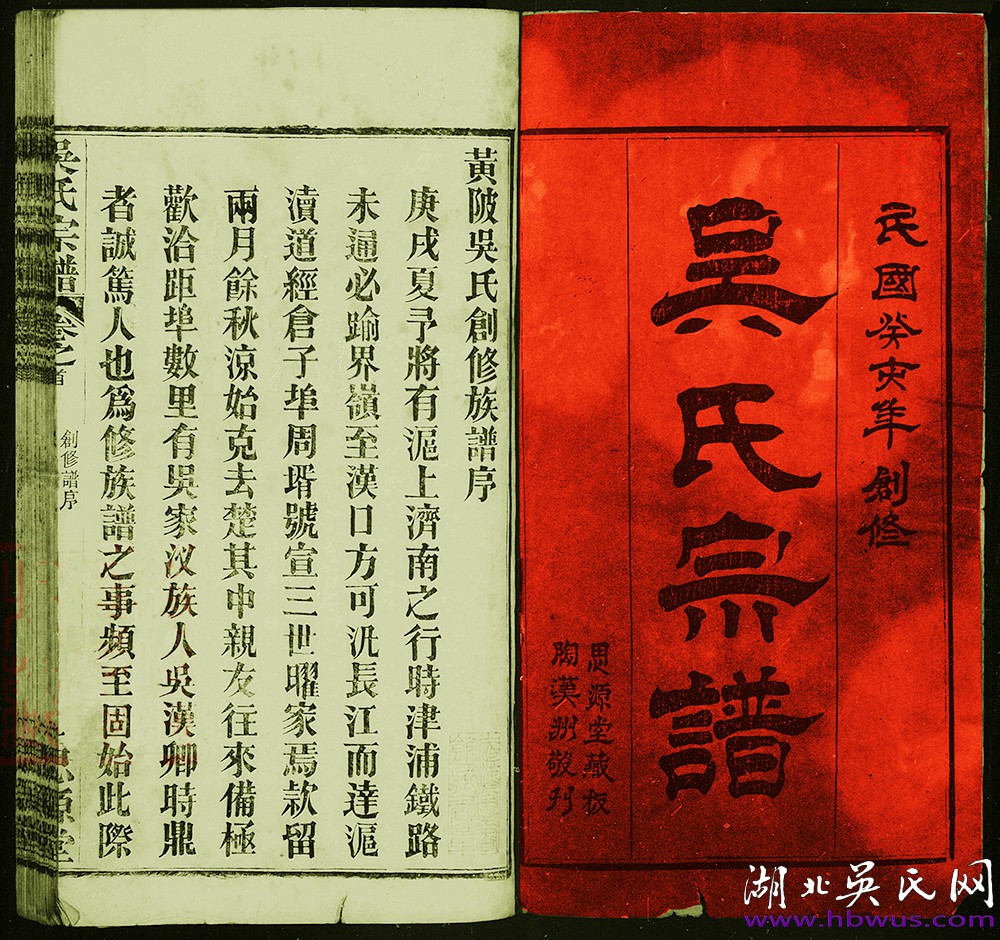 民國癸亥年創修
吳氏宗譜
思源堂藏板
陶漢州敬刊
黃陂吳氏創修族譜序
庚戌夏予將有滬上濟南之行時津浦鐵路
未通必踰界嶺至漢口方可汎長江而達滬
瀆道經倉子埠周壻號宣三世曜家焉款留
兩月餘秋涼始克去楚其中親友往來備極
歡洽距埠數里有吳家汊族人吳漢卿時鼎
者誠篤人也爲修族譜之事頻至固始此際
吳氏宗譜 卷之首 創修譜序 思源堂
湖北吳氏网
www.hbwus.com